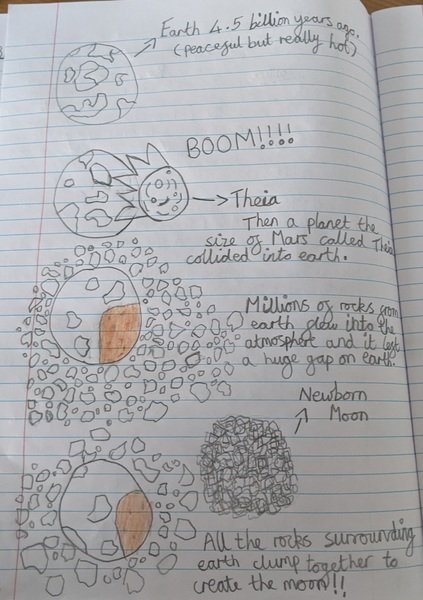 Earth 4.5 billion years ago.
(peaceful but really hot)
BOOM!!!!
Theia
Then a planet the
size of Mars called Theia
collided into earth.
Millions of rocks from
earth flow into the
atmosphere and it left
a huge gap on earth.
Newborn
Moon
All the rocks surrounding
earth clump together to
create the moon!!